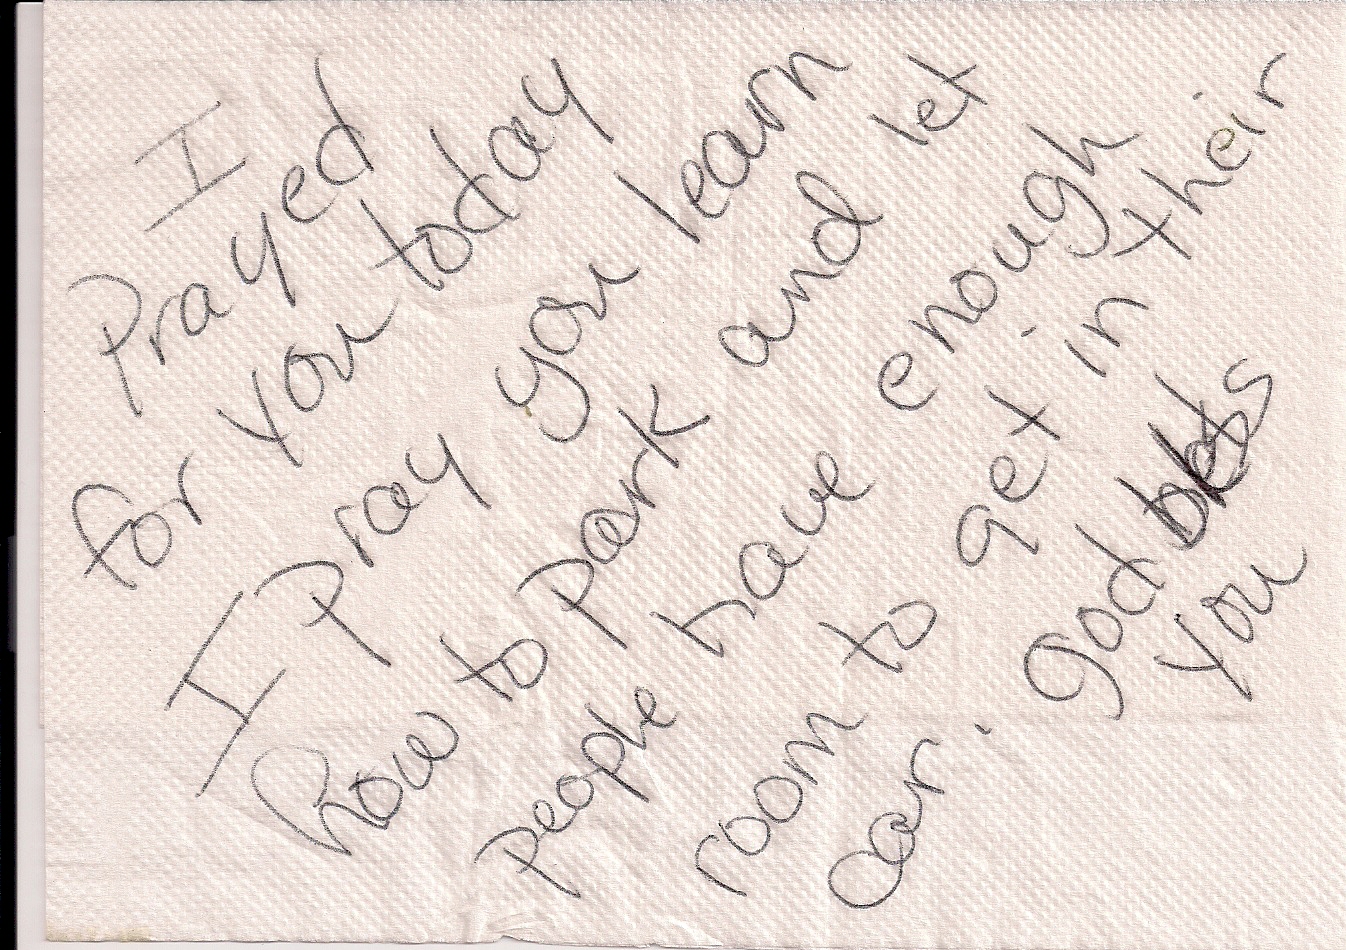 I
Prayed
for you today
I Pray you learn
how to park and let
people have enough
room to get in their
car. God bless
you